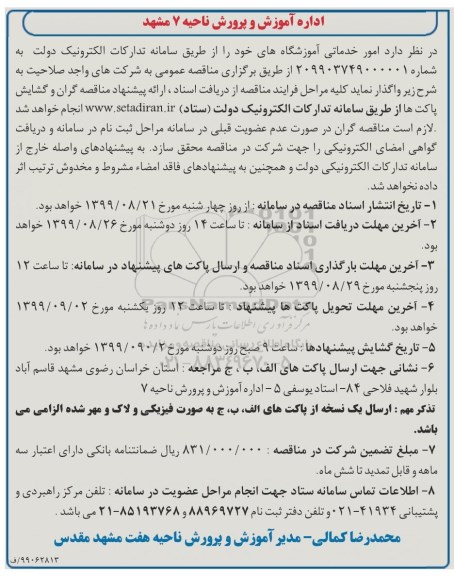 اداره آموزش و پرورش ناحیه ۷ مشهد
در نظر دارد امور خدماتی آموزشگاه های خود را از طریق سامانه تدارکات الکترونیک دولت به
شماره ۲۰۹۹۰۳۷۴۹۰۰۰۰۰۱ از طریق برگزاری مناقصه عمومی به شرکت های واجد صلاحیت به
شرح زیر واگذار نماید کلیه مراحل فرایند مناقصه از دریافت اسناد ، ارائه پیشنهاد مناقصه گران و گشایش
پاکت ها از طریق سامانه تدارکات الکترونیک دولت (ستاد) www.setadiran.ir انجام خواهد شد
.لازم است مناقصه گران در صورت عدم عضویت قبلی در سامانه مراحل ثبت نام در سامانه و دریافت
گواهی امضای الکترونیکی را جهت شرکت در مناقصه محقق سازد. به پیشنهادهای واصله خارج از
سامانه تدارکات الکترونیکی دولت و همچنین به پیشنهادهای فاقد امضاء مشروط و مخدوش ترتیب اثر
داده نخواهد شد.
۱- تاریخ انتشار اسناد مناقصه در سامانه : از روز چهار شنبه مورخ ۱۳۹۹/۰۸/۲۱ خواهد بود.
۲- آخرین مهلت دریافت اسناد از سامانه : تا ساعت ۱۴ روز دوشنبه مورخ ۱۳۹۹/۰۸/۲۶ خواهد
بود.
۳- آخرین مهلت بارگذاری اسناد مناقصه و ارسال پاکت های پیشنهاد در سامانه: تا ساعت ۱۲
روز پنجشنبه مورخ ۱۳۹۹/۰۸/۲۹ خواهد بود.
۴- آخرین مهلت تحویل پاکت ها پیشنهاد : تا ساعت ۱۲ روز یکشنبه مورخ ۱۳۹۹/۰۹/۰۲
خواهد بود.
۵- تاریخ گشایش پیشنهادها : ساعت ۹ صبح روز دوشنبه مورخ
۶- نشانی جهت ارسال پاکت های الف، ب ، ج مراجعه : استان خراسان رضوی مشهد قاسم آباد
بلوار شهید فلاحی ۸۴- استاد یوسفی ۵ - اداره آموزش و پرورش ناحیه ۷
تذکر مهم : ارسال یک نسخه از پاکت های الف، ب، ج به صورت فیزیکی و لاک و مهر شده الزامی می
باشد.
۷- مبلغ تضمین شرکت در مناقصه : ۸۳۱/۰۰۰/۰۰۰ ریال ضمانتنامه بانکی دارای اعتبار سه
ماهه و قابل تمدید تا شش ماه.
۸- اطلاعات تماس سامانه ستاد جهت انجام مراحل عضویت در سامانه : تلفن مرکز راهبردی و
پشتیبانی ۴۱۹۳۴-۰۲۱ و تلفن دفتر ثبت نام ۸۸۹۶۹۷۲۷ و ۸۵۱۹۳۷۶۸-۰۲۱ می باشد .
محمدرضا کمالی- مدیر آموزش و پرورش ناحیه هفت مشهد مقدس
۹۹۰۶۲۸۱۳/ف